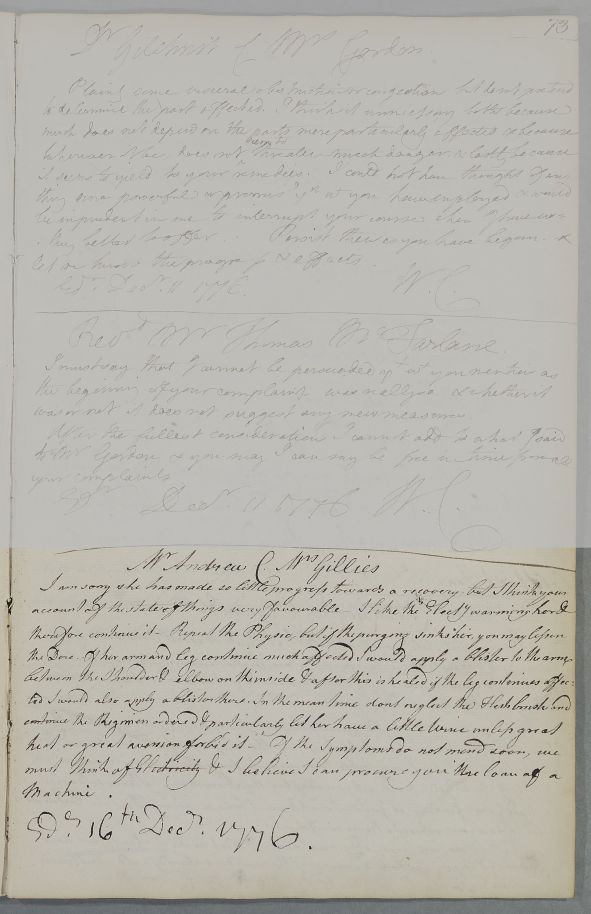 73
Dr Gilchrist C Mrs Gordon.
Plaint some visceral obstruction or congestion but dont pretend
to determine the part affected. I think it unnecessary both because
much does not depend on the parts more particularly affected & because
wherever it be, does not seem to threaten much danger & lastly because
it seems to yield to your remedies. I could not have thought of any
thing more powerful or promising yn wt you have employed & would
be imprudent in me to interrupt your course when I have no-
thing better to offer. Persist then as you have begun &
let me know the progress & effects.
Edr. Decr. 11 1776. W. C.
Revd Mr Thomas McFarlane.
I must say that I cannot be persuaded yt wt you mention as
the beginning of your complaint was really so & whether it
was or not it does not suggest any new measures.
After the fullest consideration I cannot add to what I said
to Mr Gordon & you may I can say be free in time from all
your complaints
Edr Decr. 11 1776 W. C.
Mr. Andrew C Mrs Gillies
I am sorry she has made so little progress towards a recovery but I think your
account of the state of things very favourable I like the Electy warming her &
therefore continue it - Repeat the Physic, but if the purging sinks her, you may lessen
the Dose. If her arm and leg continue much affected I would apply a blister to the arm
between the Shoulder & elbow on the inside & after this is healed if the leg continues affec-
ted I would also apply a blister there. In the mean time dont neglect the flesh brush and
continue the Regimen ordered & particularly let her have a little wine unless great
heat or great aversion forbid it. If the Symptoms do not mend soon, we
must think of Electricity & I believe I can procure you the loan of a
Machine.
Edr. 16th Decr. 1776.